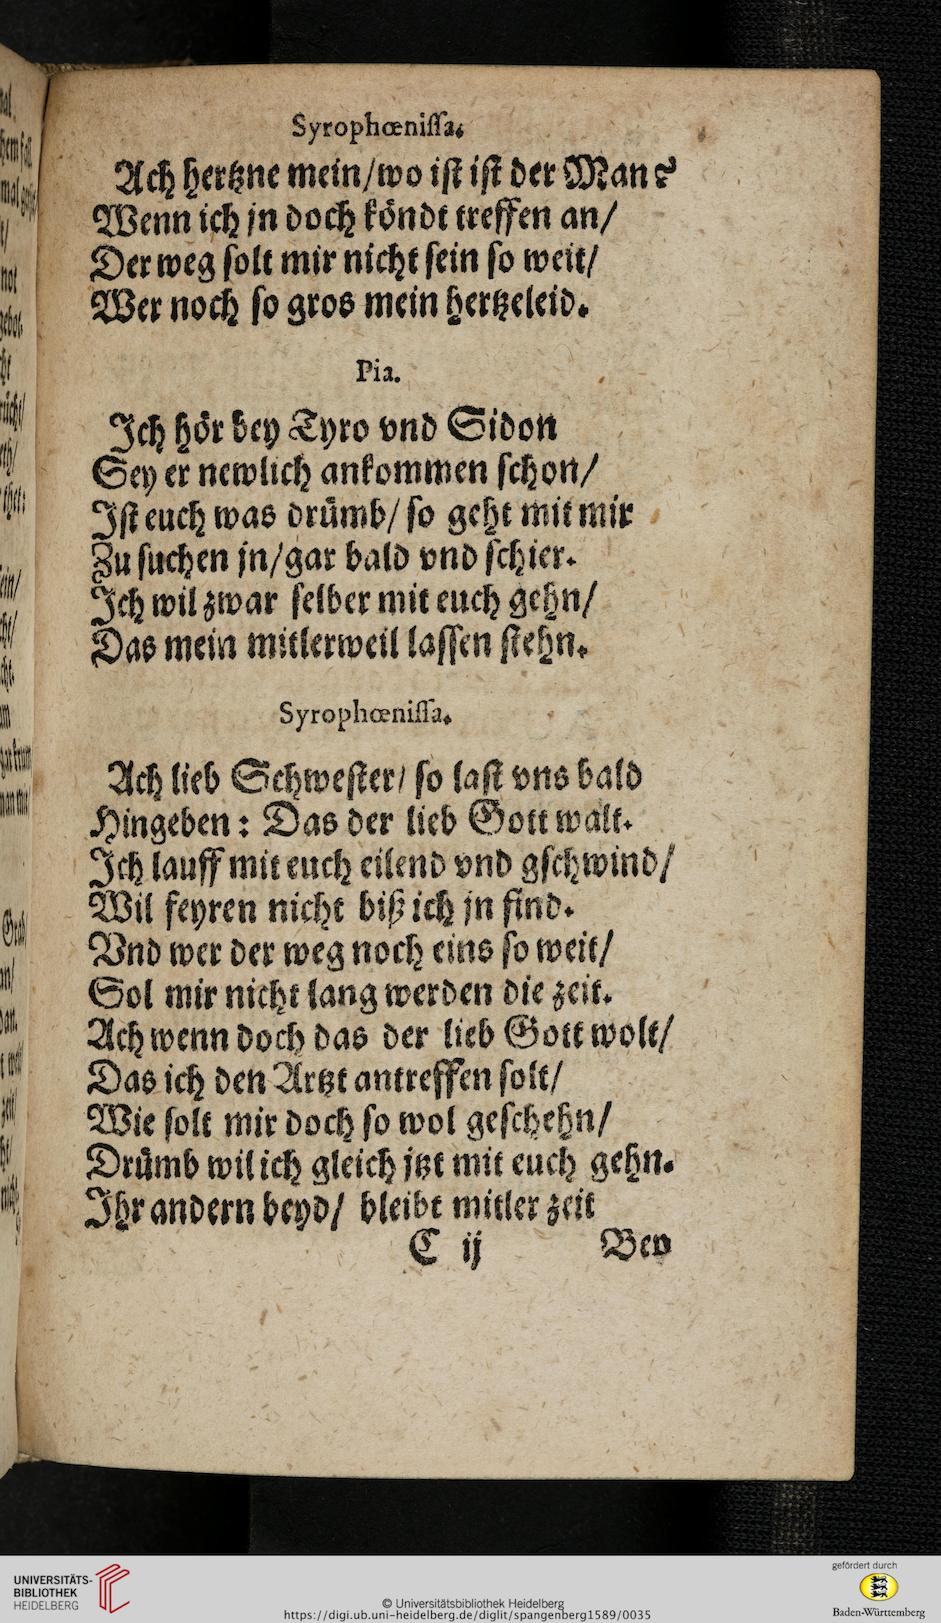 Syrophœnissa.
Ach hertzne mein/wo ist ist der Man?
Wenn ich jn doch köndt treffen an/
Der weg solt mir nicht sein so weit/
Wer noch so gros mein hertzeleid.
Pia.
Ich hör bey Tyro vnd Sidon
Sey er newlich ankommen schon/
Ist euch was drümb/ so geht mit mir
Zu suchen jn/gar bald vnd schier.
Ich wil zwar selber mit euch gehn/
Das mein mitlerweil lassen stehn.
Syrophœnissa.
Ach lieb Schwester/ so last vns bald
Hingeben: Das der lieb Gott walt.
Ich lauff mit euch eilend vnd gschwind/
Wil feyren nicht biß ich jn find.
Vnd wer der weg noch eins so weit/
Sol mir nicht lang werden die zeit.
Ach wenn doch das der lieb Gott wolt/
Das ich den Artzt antreffen solt/
Wie solt mir doch so wol geschehn/
Drümb wil ich gleich jtzt mit euch gehn.
Ihr andern beyd/ bleibt mitler zeit
C ij Bey
UNIVERSITÄTS-
BIBLIOTHEK
HEIDELBERG
© Universitätsbibliothek Heidelberg
https://digi.ub.uni-heidelberg.de/diglit/spangenberg1589/0035
gefördert durch
Baden-Württemberg